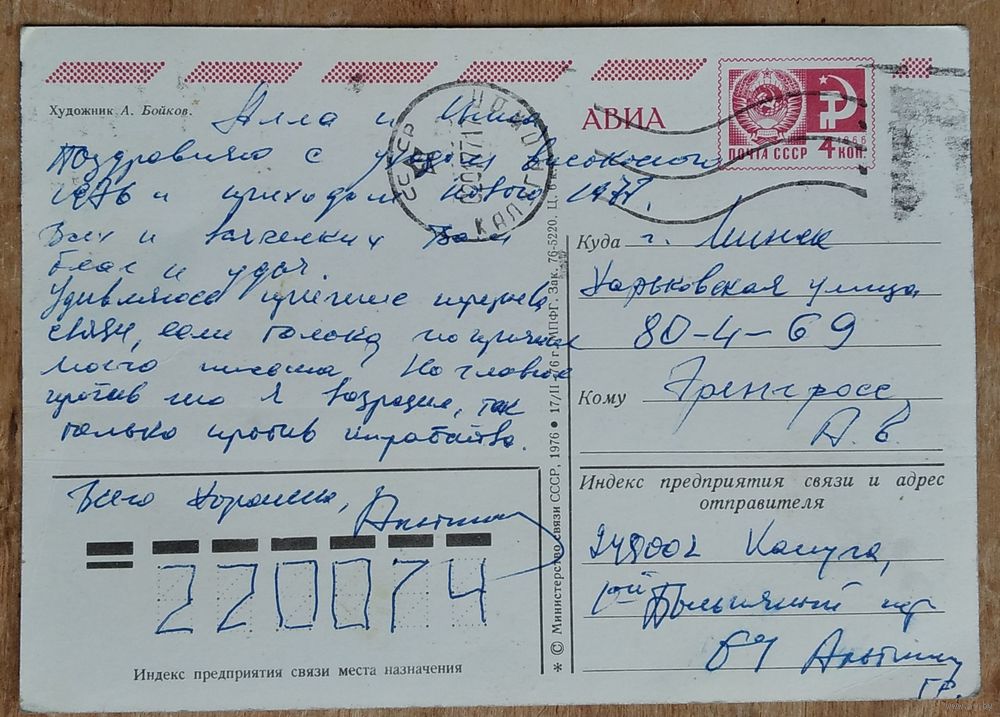 Художник А. Бойков.
АВИА
ПОЧТА СССР 4 КОП.
1966
СССР
Алла и
Поздравляю с уходом високосного
1976 и приходом нового 1977.
Всех и всяческих Вам
благ и удач.
Удивляюсь причине перерыва
связи, если только по причине
моего письма. Но главное
против чего я возражал, так
только против
Всего хорошего,
220074
Индекс предприятия связи места назначения
* © Министерство связи СССР, 1976 ● 17/II 76 г. МПФГ. Зак. 76-5220. Ц. 6
Куда г. Минск
Харьковская улица
80-4-69
Кому Гренгросс
А. В.
Индекс предприятия связи и адрес
отправителя
248002 Калуга,
1-ый пер
69
Гр.